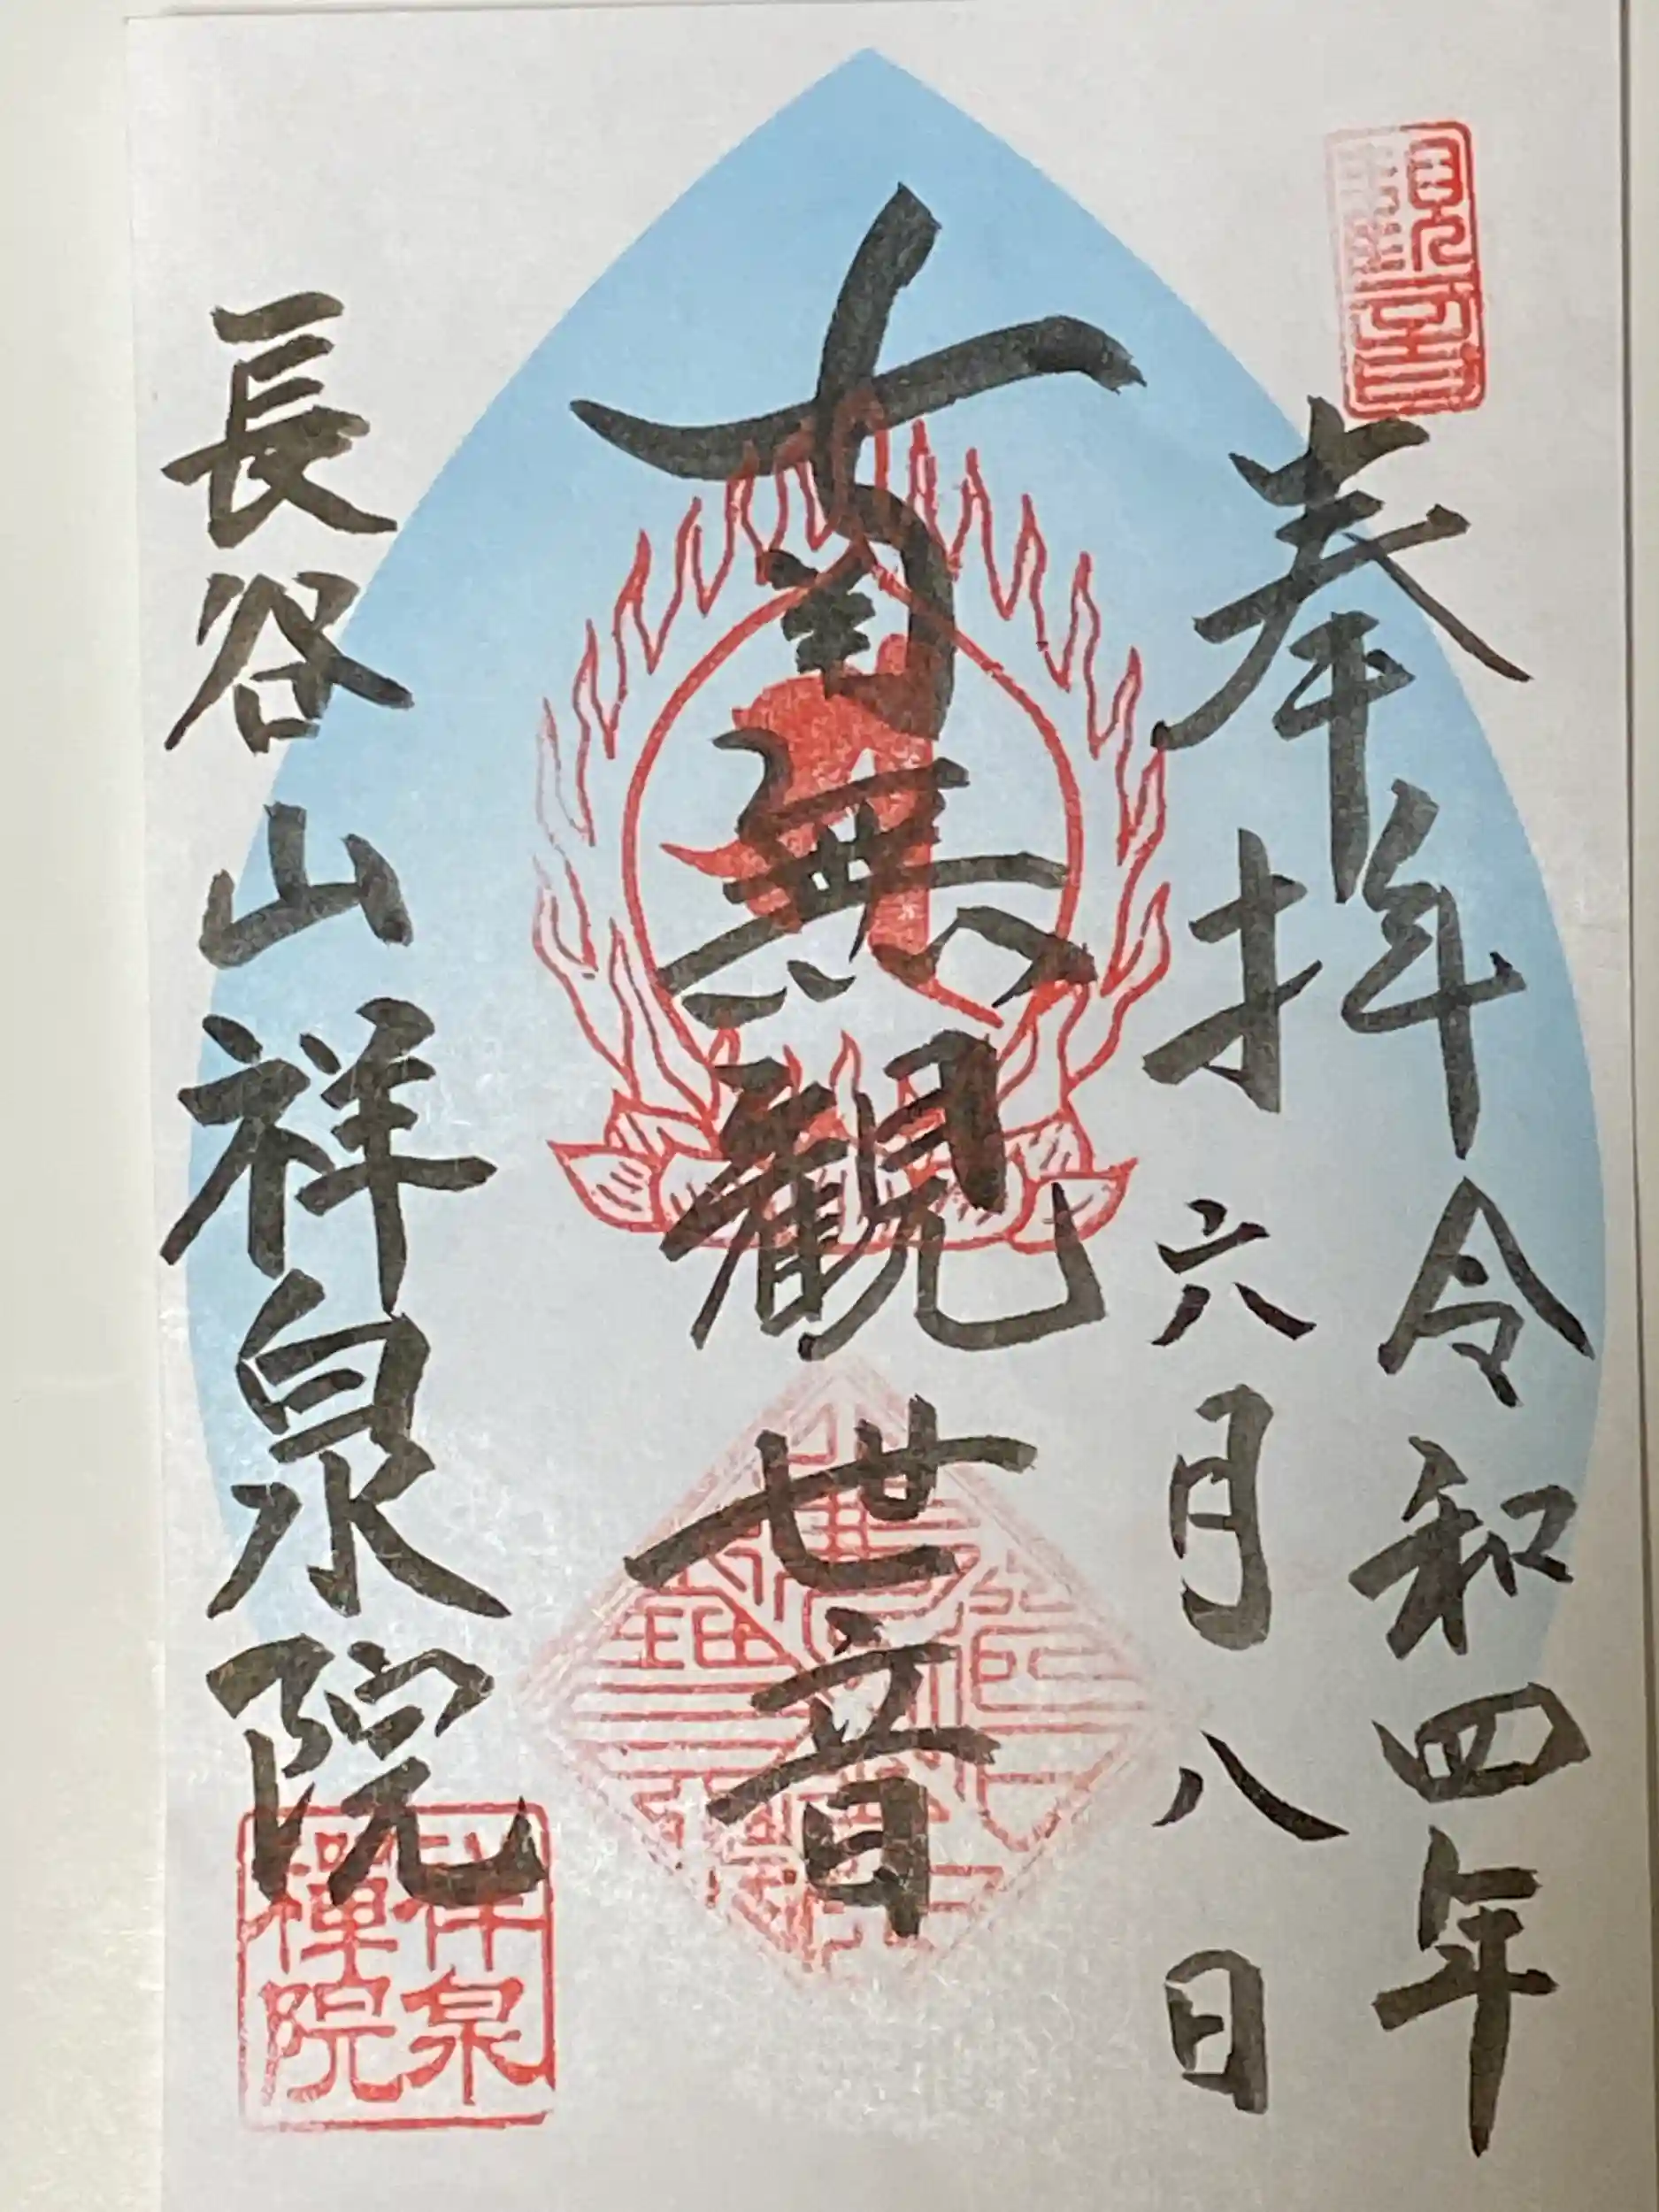 奉拝
令和四年
六月八日
南無観世音
長谷山祥泉院
祥泉
禅院